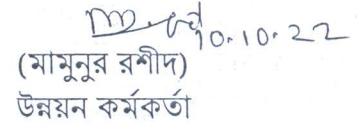 10.10.22
(মামুনুর রশীদ)
উন্নয়ন কর্মকর্তা